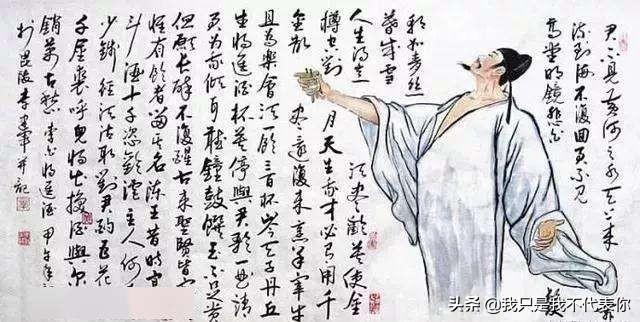 君不見黃河之水天上來
流到海不復回君不見
高堂明鏡悲白
髮
朝如青絲
暮成雪
人生得意
須盡歡莫使金
樽空對月
天生我才必有用千
金散
盡還復來烹羊宰牛
且為樂會須一飲三百杯岑夫子丹丘
生將進酒杯莫停與君歌一曲請
君為我傾耳聽鐘鼓饌玉不足貴
但願長醉不復醒古來聖賢皆
惟有飲者留其名陳王昔時宴
斗酒十千恣歡謔主人何
少錢徑須沽取對君酌五花
千金裘呼兒將出換美酒與爾
銷萬古愁 李白將進酒 甲午年
於毘陵李 軍并記
头条 @我只是我不代表你